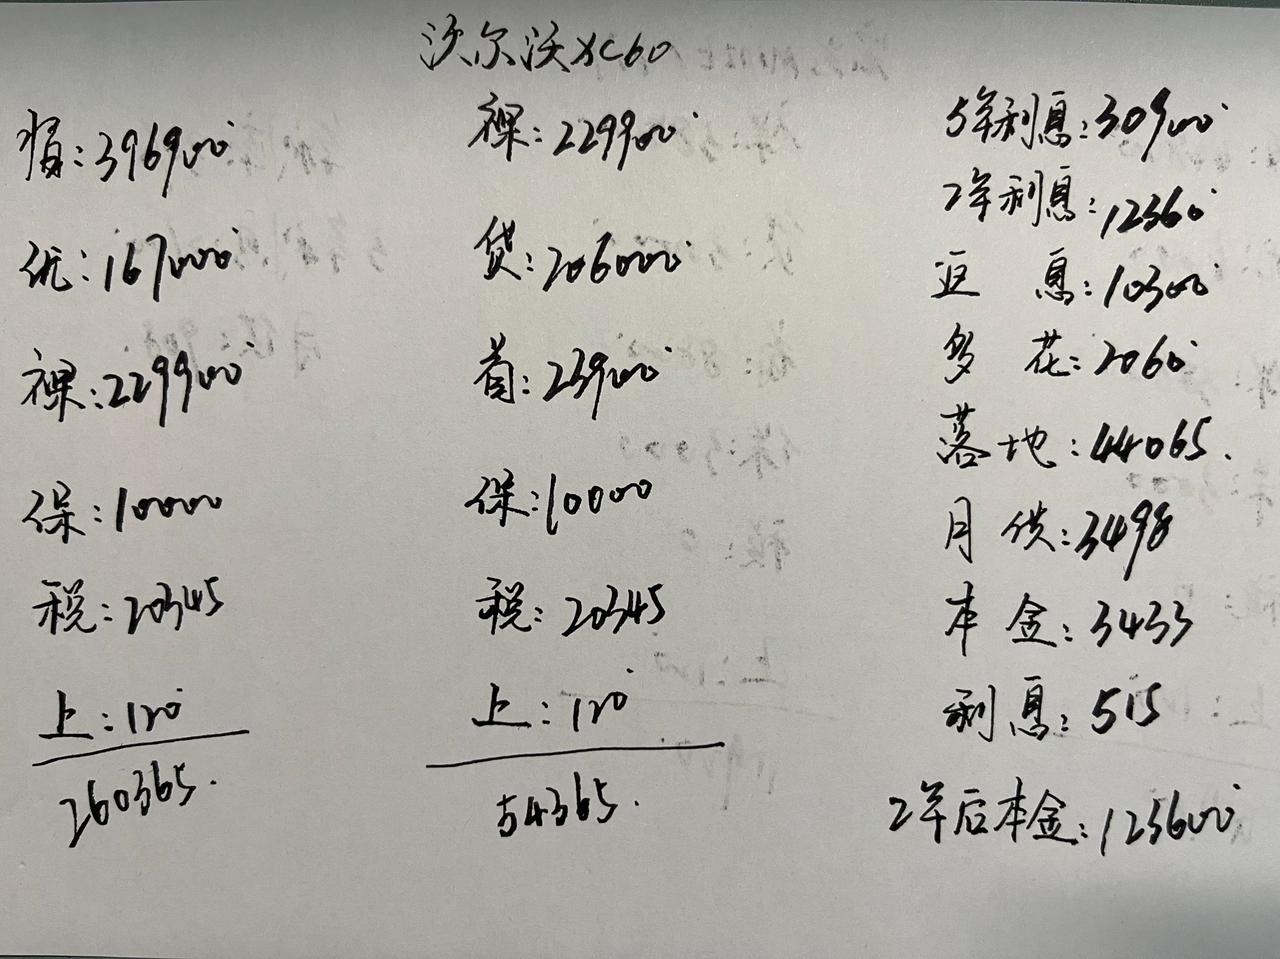 沃尔沃XC60
指:396900
优:167000
裸:229900
保:10000
税:20345
上:120
260365.
裸:229900
贷:206000
首:23900
保:10000
税:20345
上:120
54365.
5年利息:30900
2年利息:12360
返息:10300
多花:2060
落地:44065.
月供:3498
本金:3433
利息:515
2年后本金:123600